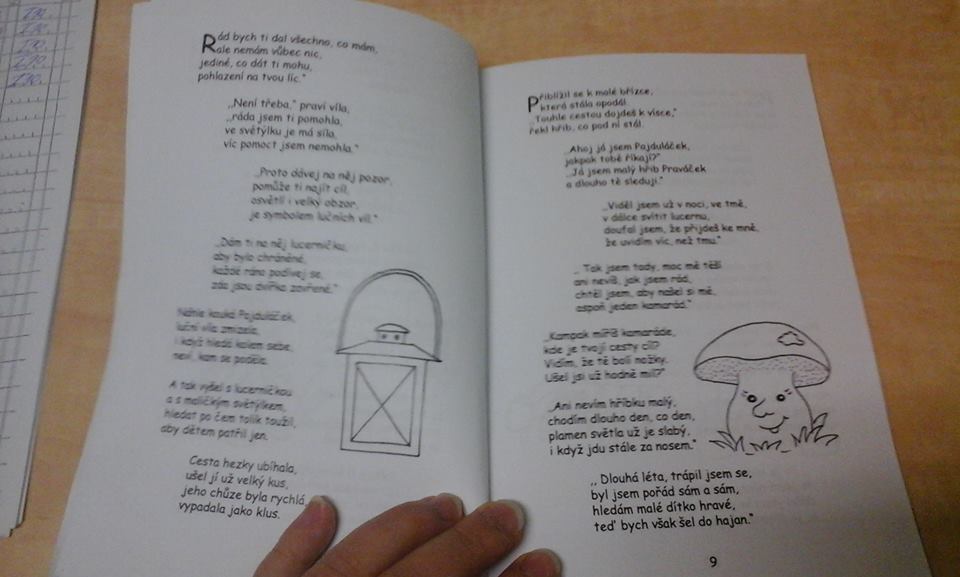 Rád bych ti dal všechno, co mám,
ale nemám vůbec nic,
jediné, co dát ti mohu,
pohlazení na tvou líc."
„Není třeba," praví víla,
„ráda jsem ti pomohla,
ve světýlku je má síla,
víc pomoct jsem nemohla."
„Proto dávej na něj pozor,
pomůže ti najít cíl,
osvětlí i velký obzor,
je symbolem lučních víl."
„Dám ti na něj lucerničku,
aby bylo chráněné,
každé ráno podívej se,
zda jsou dvířka zavřené."
Náhle kouká Pajduláček,
luční víla zmizela,
i když hledá kolem sebe,
neví, kam se poděla.
A tak vyšel s lucerničkou
a s maličkým světýlkem,
hledat po čem tolik toužil,
aby dětem patřil jen.
Cesta hezky ubíhala,
ušel jí už velký kus,
jeho chůze byla rychlá,
vypadala jako klus.
Přiblížil se k malé břízce,
která stála opodál.
„Touhle cestou dojdeš k vísce,"
řekl hřib, co pod ní stál.
„Ahoj já jsem Pajduláček,
jakpak tobě říkají?"
„Já jsem malý hřib Praváček
a dlouho tě sleduji."
„Viděl jsem už v noci, ve tmě,
v dálce svítit lucernu,
doufal jsem, že přijdeš ke mně,
že uvidím víc, než tmu."
„ Tak jsem tady, moc mě těší
ani nevíš, jak jsem rád,
chtěl jsem, aby našel si mě,
aspoň jeden kamarád."
„Kampak míříš kamaráde,
kde je tvojí cesty cíl?
Vidím, že tě bolí nožky.
Ušel jsi už hodně mil?"
„Ani nevím hříbku malý,
chodím dlouho den, co den,
plamen světla už je slabý,
i když jdu stále za nosem."
,, Dlouhá léta, trápil jsem se,
byl jsem pořád sám a sám,
hledám malé dítko hravé,
teď bych však šel do hajan."
9